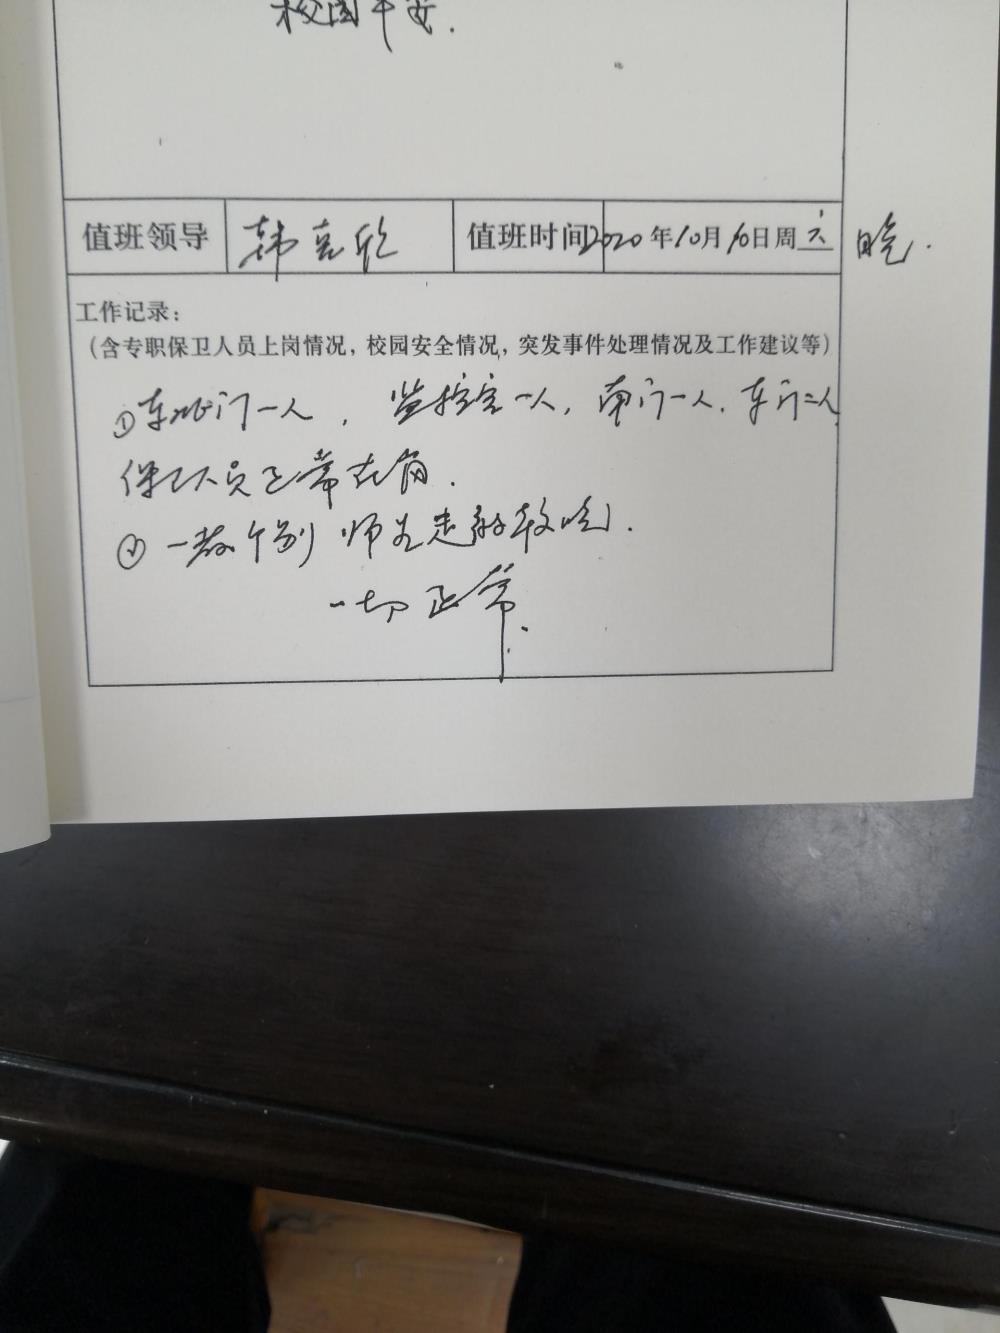 校园平安.
值班领导 韩嘉欣 值班时间 2020年10月10日周六 晚.
工作记录：
（含专职保卫人员上岗情况，校园安全情况，突发事件处理情况及工作建议等）
①东北门一人，监控室一人，南门一人，东门二人
保卫人员正常在岗.
② 一教个别师生走的较晚.
一切正常.